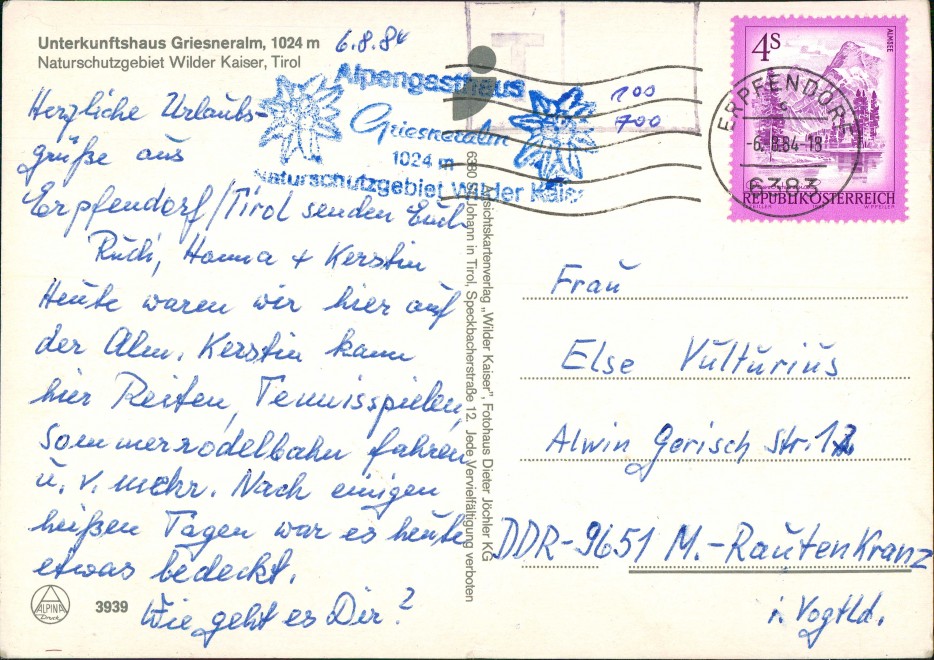 Unterkunftshaus Griesneralm, 1024 m
Naturschutzgebiet Wilder Kaiser, Tirol
6.8.84
Herzliche Urlaubs-
grüße aus
Erpfendorf/Tirol senden Euch
Rudi, Hanna + Kerstin
Heute waren wir hier auf
der Alm. Kerstin kann
hier Reiten, Tennisspielen,
Sommerrodelbahn fahren
u. v. mehr. Nach einigen
heißen Tagen war es heute
etwas bedeckt.
Wie geht es Dir?
ALPINA
Druck
3939
Alpengasthaus
Griesneralm
1024 m
Naturschutzgebiet Wilder Kaiser
Ansichtskartenverlag „Wilder Kaiser", Fotohaus Dieter Jöchler KG
6380 St. Johann in Tirol, Speckbacherstraße 12. Jede Vervielfältigung verboten
T
100
700
4s
ALMSEE
REPUBLIK ÖSTERREICH
ERPFENDORF
-6. 8.84-18
6383
Frau
Else Vulturius
Alwin Gerisch Str.
DDR-9651 M.-Rautenkranz
i. Vogtld.